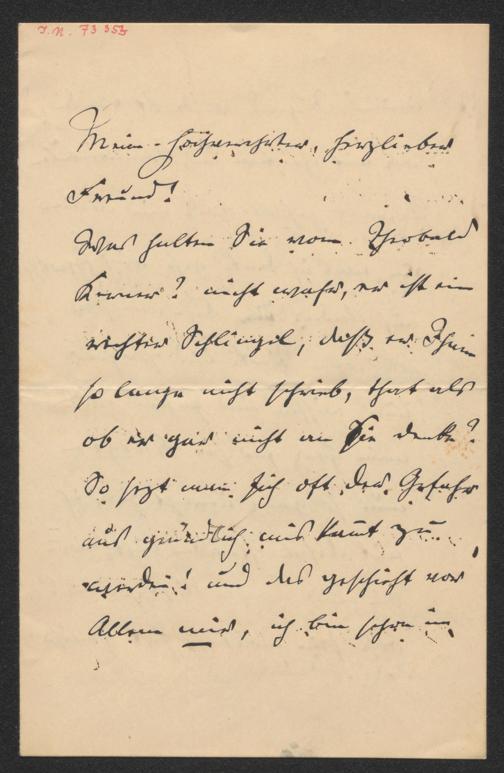 I. N. 73 357
Mein hochverehrter, herzlieber
Freund!
Was halten Sie vom Theobald
Kerner? nicht wahr, er ist ein
rechter Schlingel, daß er Ihnen
so lange nicht schrieb, that als
ob er gar nicht an Sie denke?
So sezt man sich oft der Gefahr
aus gründlich miskannt zu
werden! und das geschieht vor
Allem mir, ich bin schon im